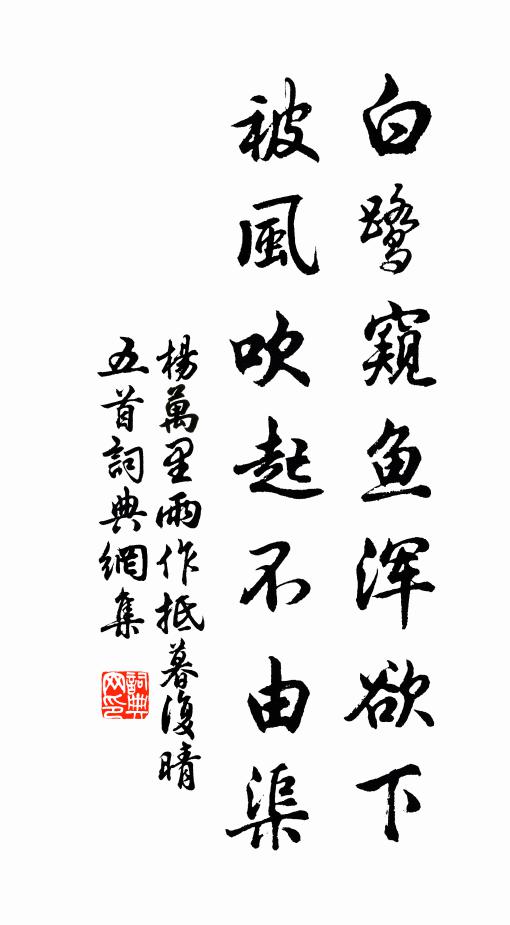 白鹭窺鱼浑欲下
被風吹起不由渠
楊萬里雨作抵暮復晴
五首詞典網集
詞典网印